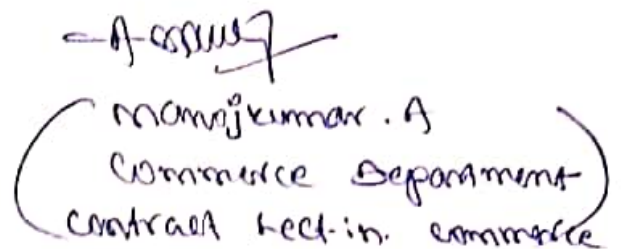 Manojkumar. A
Commerce Department
Contract Lect-in. Commerce